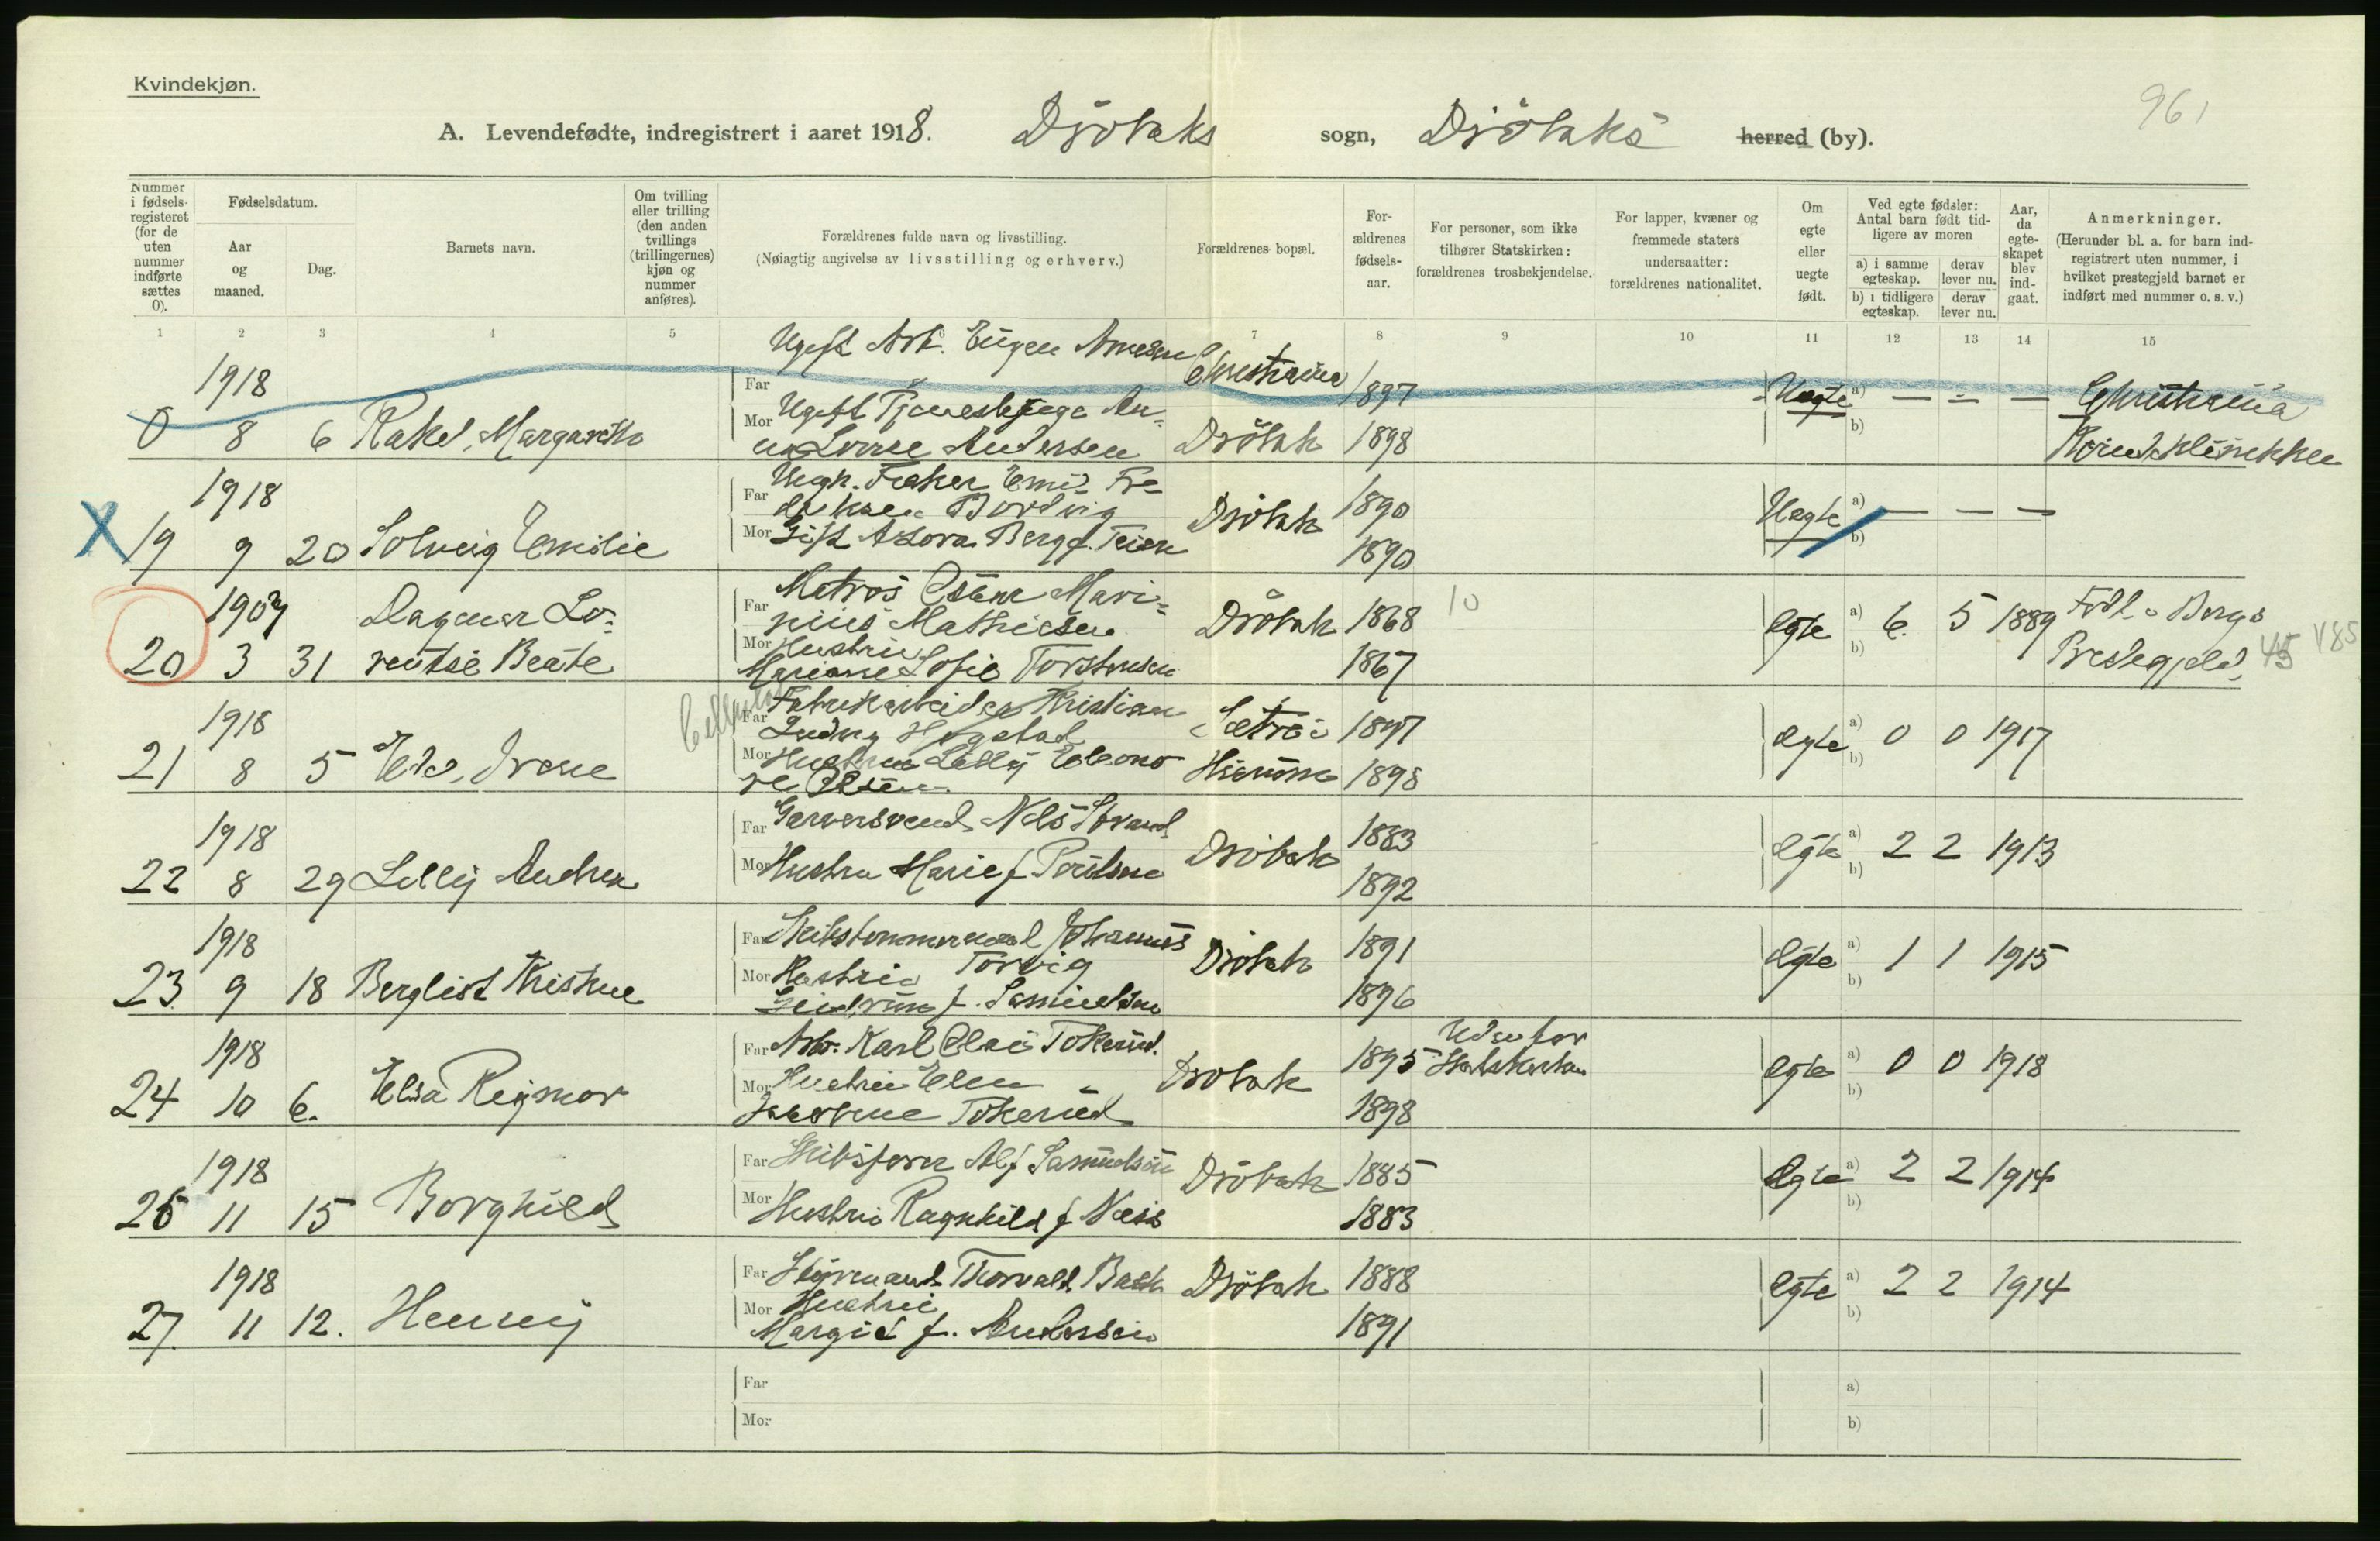 Kvindekjøn.
961
A. Levendefødte, indregistrert i aaret 1918. Drøbaks sogn, Drøbaks herred (by).
Nummer i fødsels-registeret (for de uten nummer indførte sættes 0).
Fødselsdatum.
Aar og maaned.
Dag.
Barnets navn.
Om tvilling eller trilling (den anden tvillings (trillingernes) kjøn og nummer anføres).
Forældrenes fulde navn og livsstilling.
(Nøiagtig angivelse av livsstilling og erhverv.)
Forældrenes bopæl.
For-ældrenes fødsels-aar.
For personer, som ikke tilhører Statskirken: forældrenes trosbekjendelse.
For lapper, kvæner og fremmede staters undersaatter: forældrenes nationalitet.
Om egte eller uegte født.
Ved egte fødsler: Antal barn født tid-ligere av moren
a) i samme egteskap.
derav lever nu.
b) i tidligere egteskap.
derav lever nu.
Aar, da egte-skapet blev ind-gaat.
Anmerkninger.
(Herunder bl. a. for barn ind-registrert uten nummer, i hvilket prestegjeld barnet er indført med nummer o. s. v.)
1 2 3 4 5 6 7 8 9 10 11 12 13 14 15
Ugift Arb. Eugen Arnesen Christiania
1918 Far 1897 Uegte a) — — — Christiania
0 8 6 Rakel, Margarethe Mor Ugift Tjenestepige An-
na Lovise Andersen Drøbak 1898 b) Kvindeklinikken
1918 Far Ungk. Fisker Emil Fre-
driksen Bording Drøbak 1890 Uegte a) — — —
X 19 9 20 Solveig Emilie Mor Gift Azora Berg f. Teien 1890 b)
1907 Dagmar Lo- Far Matros Oskar Mari-
nius Mathiesen Drøbak 1868 10 Egte a) 6. 5 1889 Født i Bergs
20 3 31 rentse Beate Mor Hustru
Mariane Sofie Torstensen 1867 b) Prestegjeld. 45 V85
1918 Far Fabrikarbeider Kristian
Ludvig Sætre i 1897 Egte a) 0 0 1917
21 8 5 Else, Irene Mor Hustru Lilly Eleono
re Olsen Hurum 1898 b)
1918 Far Garversvend Nils Strand Drøbak 1883 Egte a) 2 2 1913
22 8 29 Lilly Andrea Mor Hustru Marie f Poulsen 1892 b)
1918 Far Skibstømmermand Johannes
Torvig Drøbak 1891 Egte a) 1 1 1915
23. 9 18 Bergliot Kristine Mor Hustru
Gudrun f. Samuelsen 1896 b)
1918 Far Arb. Karl Olai Tokerud. Drøbak 1895 Udenfor Statskirken Egte a) 0 0 1918
24 10 6. Elsa Reymor Mor Hustru Elen
Jakobine Tokerud 1898 b)
1918 Far Skibsfører Alf Samuelsen Drøbak 1885 Egte a) 2 2 1914
26 11 15 Borghild Mor Hustru Ragnhild f Næss 1883 b)
1918 Far Styrmand Thorvald Bakk Drøbak 1888 Egte a) 2 2 1914
27. 11 12. Henny Mor Hustru
Margit f. Andersen 1891 b)
Far a)
Mor b)